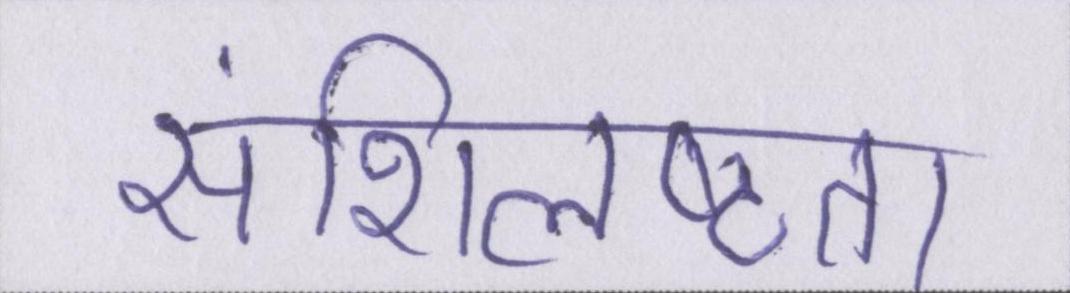 संशिलष्टता